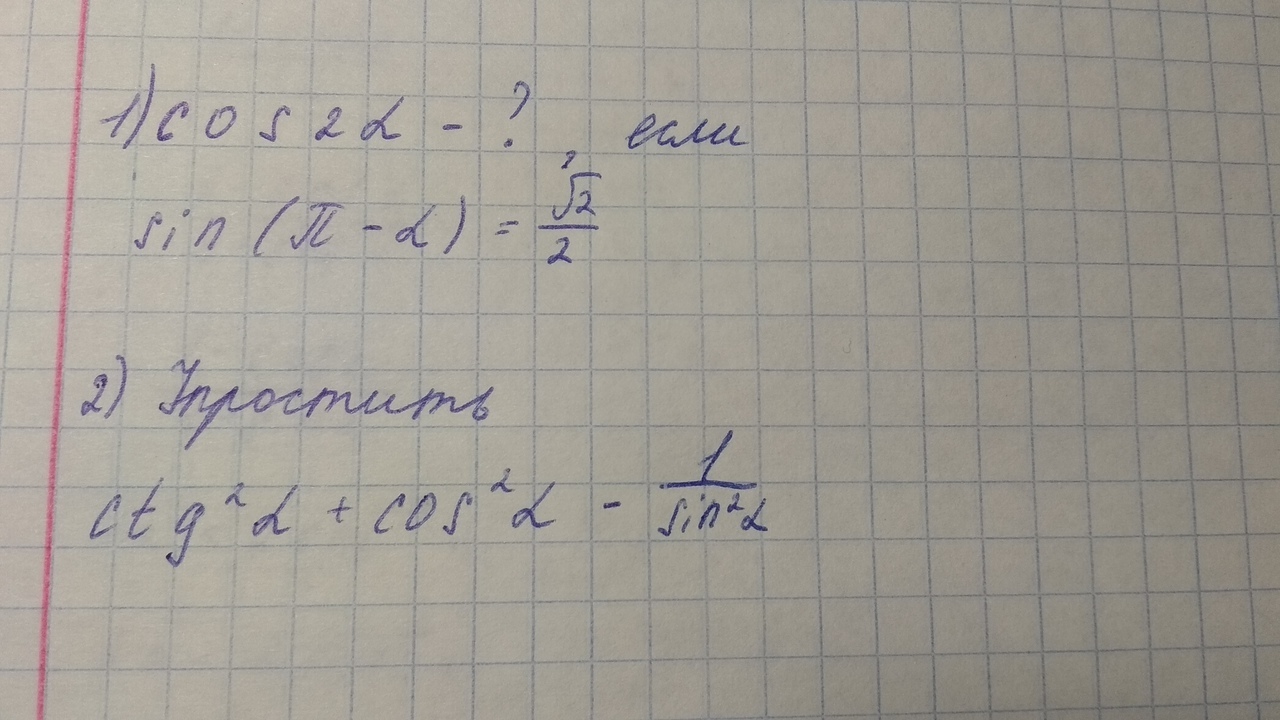 1) cos 2α - ? если
sin (π - α) = √2/2
2) Упростить
ctg²α + cos²α - 1/sin²α